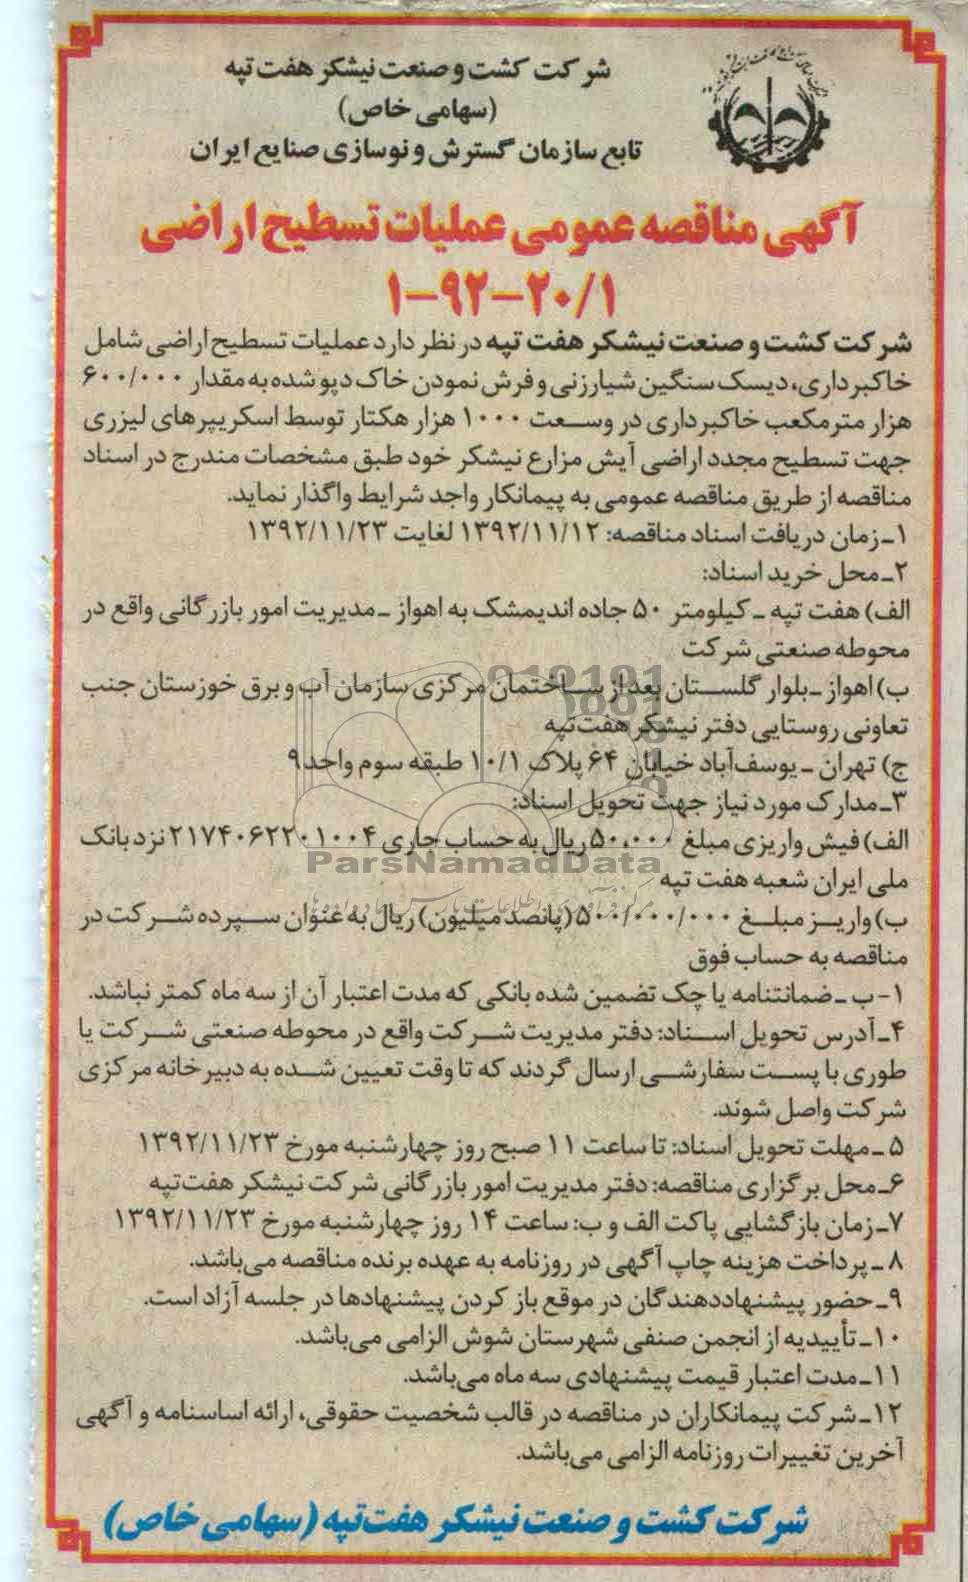 شرکت کشت و صنعت نیشکر هفت تپه
(سهامی خاص)
تابع سازمان گسترش و نوسازی صنایع ایران
آگهی مناقصه عمومی عملیات تسطیح اراضی
۱-۹۲-۲۰/۱
شرکت کشت و صنعت نیشکر هفت تپه در نظر دارد عملیات تسطیح اراضی شامل
خاکبرداری، دیسک سنگین شیارزنی و فرش نمودن خاک دپو شده به مقدار ۶۰۰/۰۰۰
هزار مترمکعب خاکبرداری در وسعت ۱۰۰۰ هزار هکتار توسط اسکریپرهای لیزری
جهت تسطیح مجدد اراضی آیش مزارع نیشکر خود طبق مشخصات مندرج در اسناد
مناقصه از طریق مناقصه عمومی به پیمانکار واجد شرایط واگذار نماید.
۱ـ زمان دریافت اسناد مناقصه: ۱۳۹۲/۱۱/۱۲ لغایت ۱۳۹۲/۱۱/۲۳
۲ـ محل خرید اسناد:
الف) هفت تپه ـ کیلومتر ۵۰ جاده اندیمشک به اهواز ـ مدیریت امور بازرگانی واقع در
محوطه صنعتی شرکت
ب) اهواز ـ بلوار گلستان بعد از ساختمان مرکزی سازمان آب و برق خوزستان جنب
تعاونی روستایی دفتر نیشکر هفت‌تپه
ج) تهران ـ یوسف‌آباد خیابان ۶۴ پلاک ۱۰/۱ طبقه سوم واحد ۹
۳ـ مدارک مورد نیاز جهت تحویل اسناد:
الف) فیش واریزی مبلغ ۵۰،۰۰۰ ریال به حساب جاری ۲۱۷۴۰۶۲۲۰۱۰۰۴ نزد بانک
ParsNamadData
ملی ایران شعبه هفت تپه
ب) واریز مبلغ ۵۰۰/۰۰۰/۰۰۰ (پانصد میلیون) ریال به عنوان سپرده شرکت در
مناقصه به حساب فوق
۱- ب ـ ضمانتنامه یا چک تضمین شده بانکی که مدت اعتبار آن از سه ماه کمتر نباشد.
۴ـ آدرس تحویل اسناد: دفتر مدیریت شرکت واقع در محوطه صنعتی شرکت یا
طوری با پست سفارشی ارسال گردند که تا وقت تعیین شده به دبیرخانه مرکزی
شرکت واصل شوند.
۵ ـ مهلت تحویل اسناد: تا ساعت ۱۱ صبح روز چهارشنبه مورخ ۱۳۹۲/۱۱/۲۳
۶ـ محل برگزاری مناقصه: دفتر مدیریت امور بازرگانی شرکت نیشکر هفت‌تپه
۷ـ زمان بازگشایی پاکت الف و ب: ساعت ۱۴ روز چهارشنبه مورخ ۱۳۹۲/۱۱/۲۳
۸ ـ پرداخت هزینه چاپ آگهی در روزنامه به عهده برنده مناقصه می‌باشد.
۹ـ حضور پیشنهاددهندگان در موقع باز کردن پیشنهادها در جلسه آزاد است.
۱۰ـ تأییدیه از انجمن صنفی شهرستان شوش الزامی می‌باشد.
۱۱ـ مدت اعتبار قیمت پیشنهادی سه ماه می‌باشد.
۱۲ـ شرکت پیمانکاران در مناقصه در قالب شخصیت حقوقی، ارائه اساسنامه و آگهی
آخرین تغییرات روزنامه الزامی می‌باشد.
شرکت کشت و صنعت نیشکر هفت‌تپه (سهامی خاص)